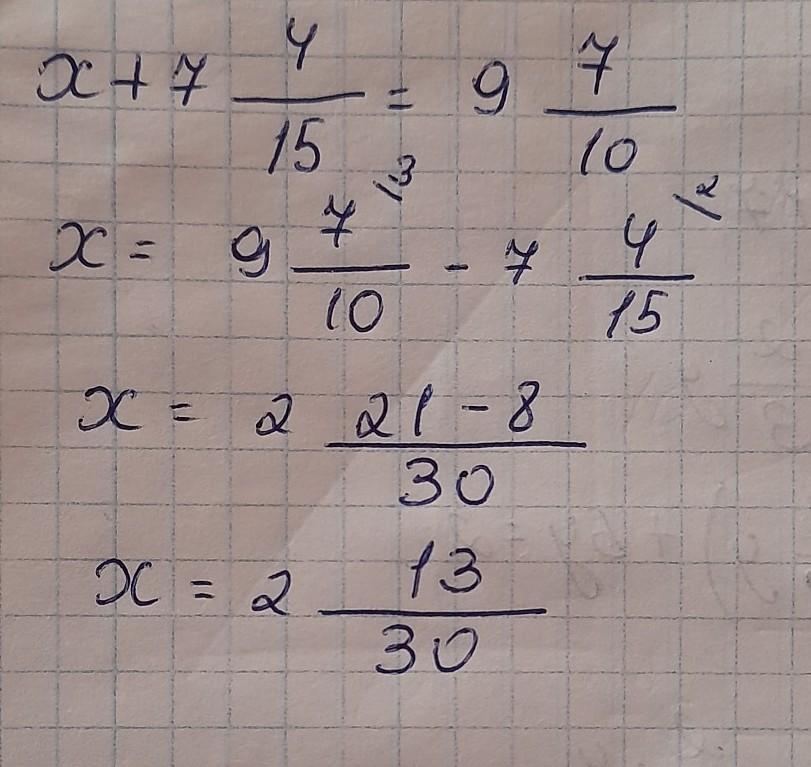 x + 7 4/15 = 9 7/10
x = 9 7/10 \3 - 7 4/15 \2
x = 2 21 - 8/30
x = 2 13/30